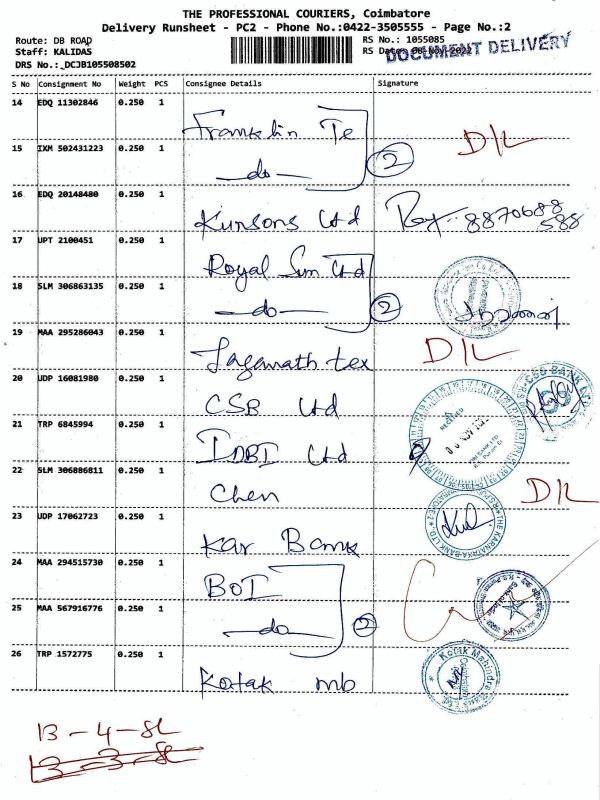 THE PROFESSIONAL COURIERS, Coimbatore
Delivery Runsheet - PC2 - Phone No.:0422-3505555 - Page No.:2
Route: DB ROAD RS No.: 1055085
Staff: KALIDAS RS Date: 08-Nov-2022
DOCUMENT DELIVERY
DRS No.:_DCJB105508502
S No Consignment No Weight PCS Consignee Details Signature
14 EDQ 11302846 0.250 1 Franklin Te
15 IXM 502431223 0.250 1 -do- 2 D/L
16 EDQ 20148480 0.250 1 Kunsons Ltd 8870688588
17 UPT 2100451 0.250 1 Royal Sun Ltd
18 SLM 306863135 0.250 1 -do- 2
19 MAA 295286043 0.250 1 Jaganath tex D/L
20 UDP 16081980 0.250 1 CSB Ltd CSB BANK
21 TRP 6845994 0.250 1 IDBI Ltd RECEIVED
22 SLM 306886811 0.250 1 Chen D/L
23 UDP 17062723 0.250 1 Kar Bank THE KARNATAKA BANK LTD.
24 MAA 294515730 0.250 1 BOI
25 MAA 567916776 0.250 1 -do- 2
26 TRP 1572775 0.250 1 Kotak mb Kotak Mahindra
13-4-8L
13-3-8L